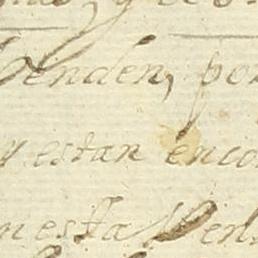 Venden, por
y estan enco
n esta Ven